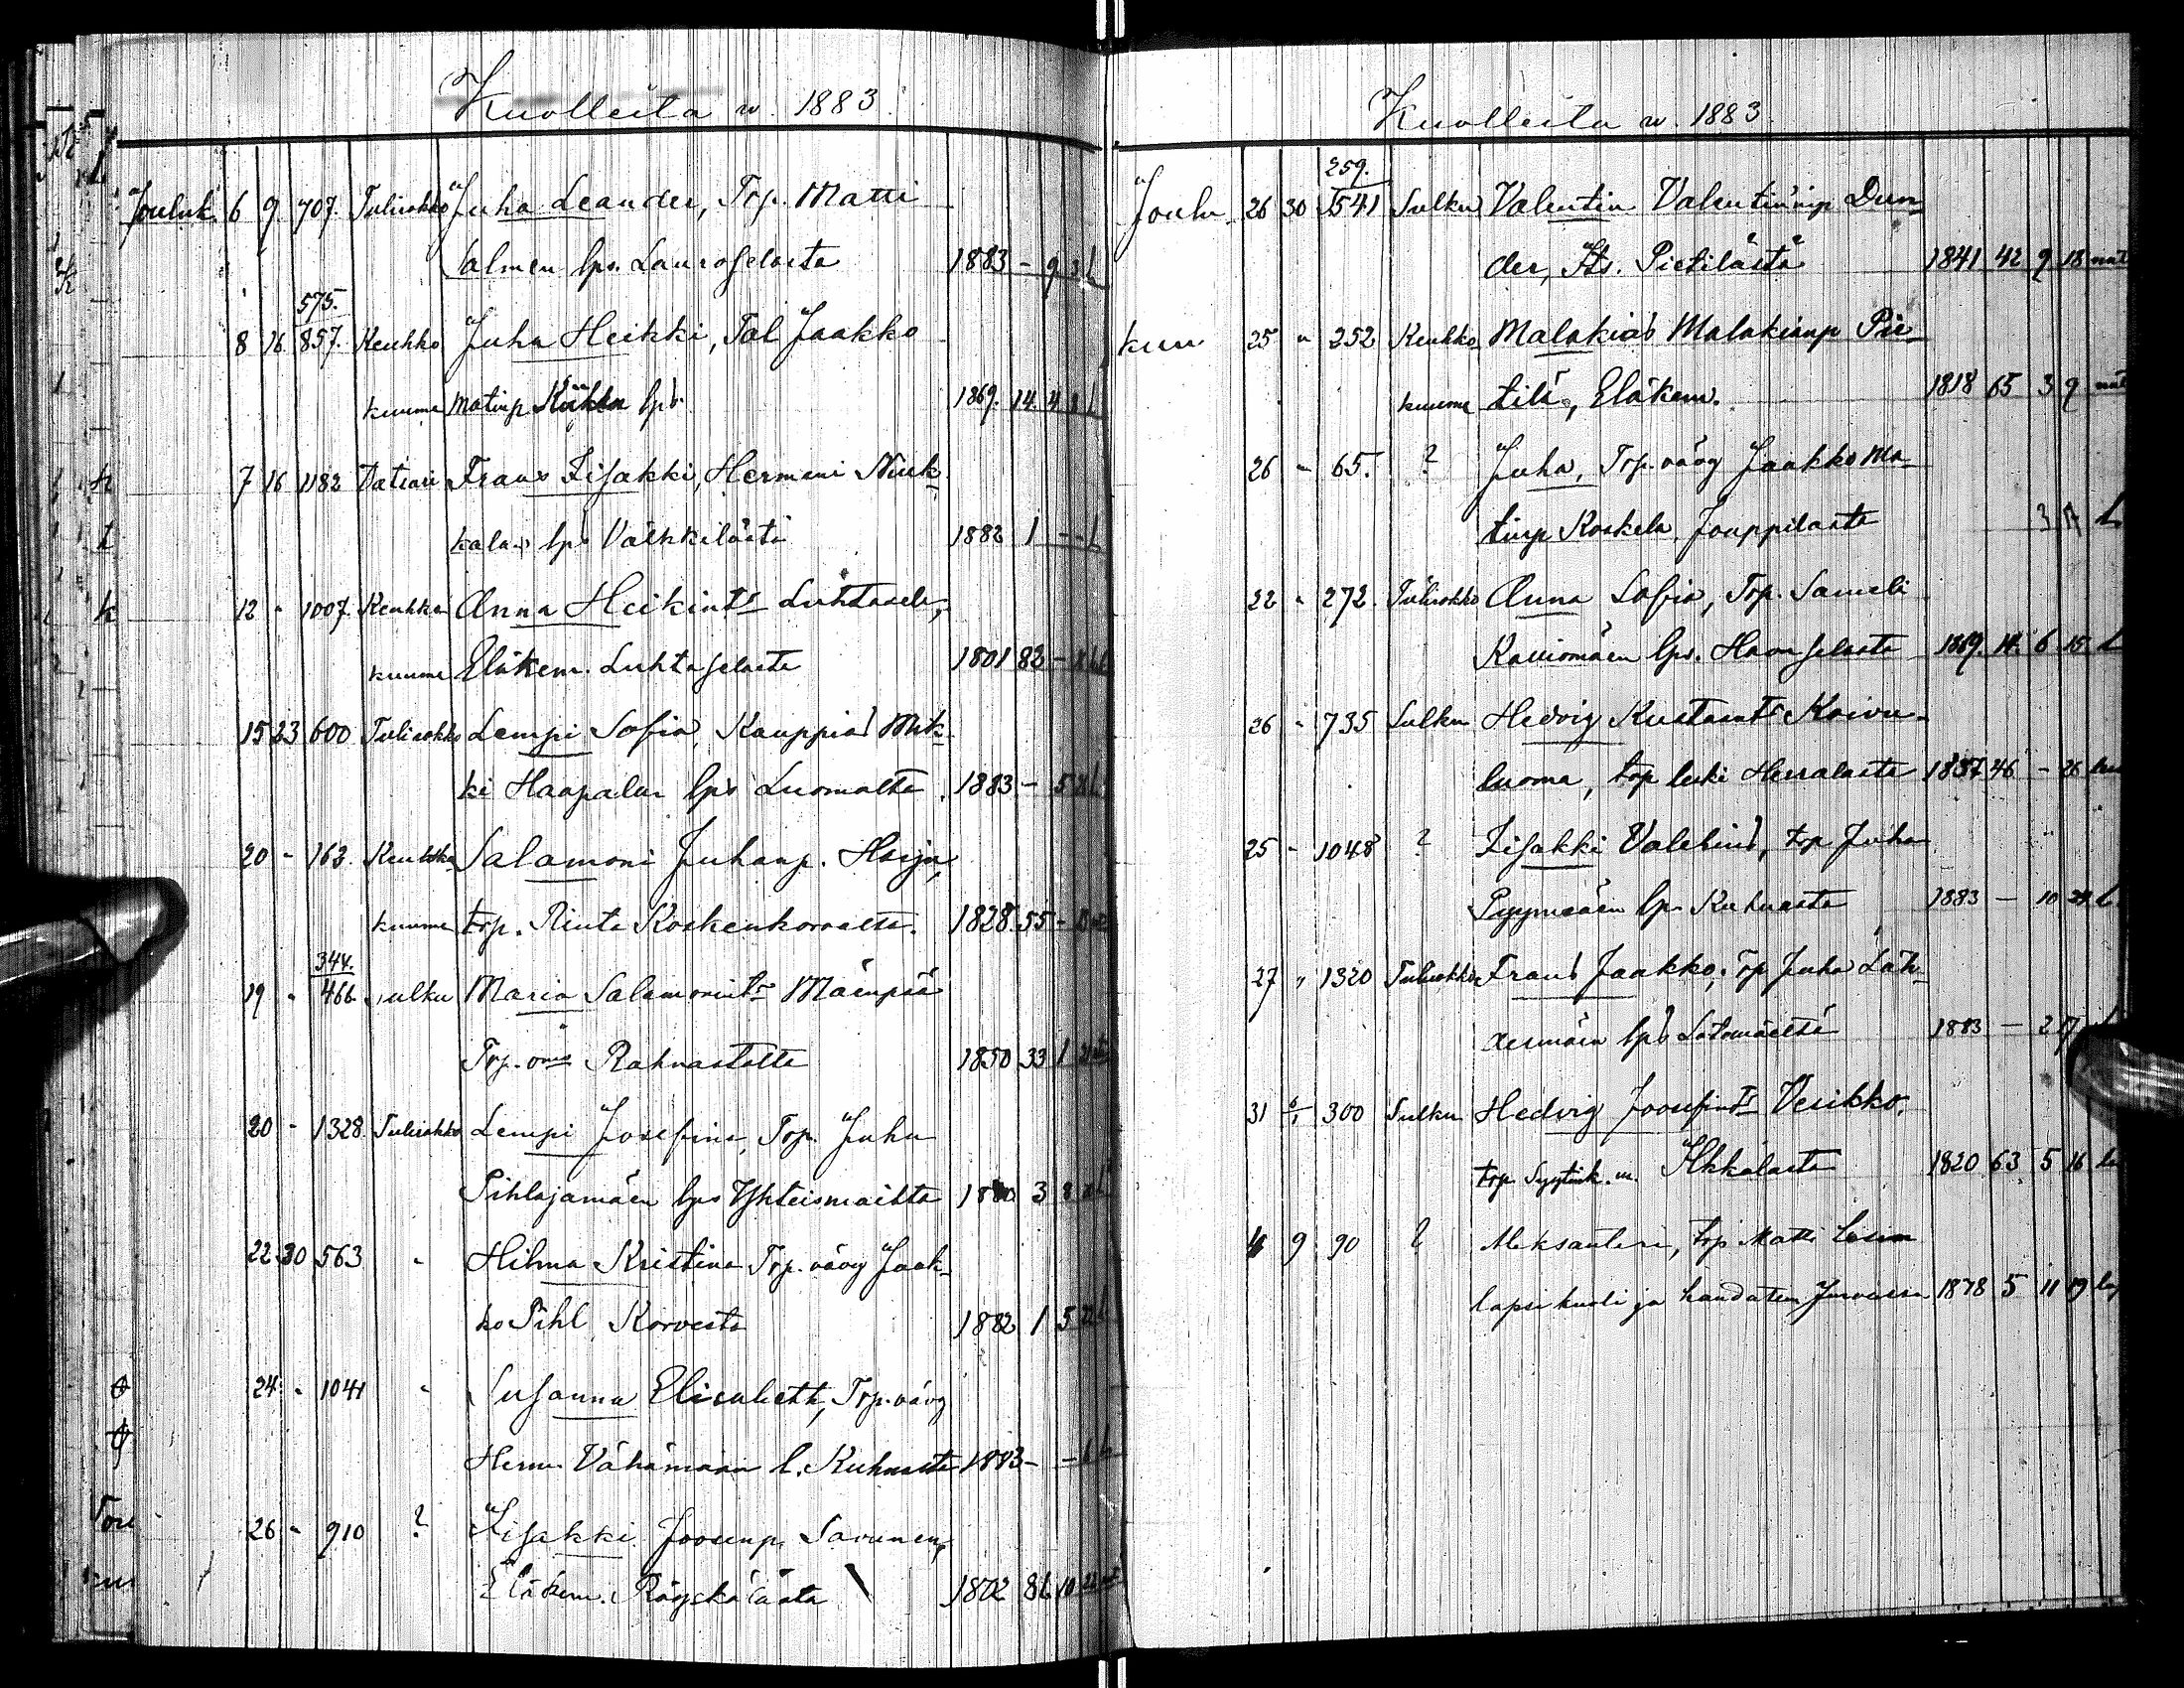 Kuolleita w. 1883.
Jouluk. 6 9 707. Tulirokko Juha Leander, Trp. Matti
Salmen lps. Lauroselasta 1883 - 9 3 L
575.
8 16 857. Keuhko Juha Heikki, Tal Jaakko
kuume Matinp lps. 1869. 14. 4 L
7 16 1182 Vatsari Frans Iisakki, Hermani Niuk-
kalan lps Välkkilästä 1882 1 - - L
12 " 1007. Keuhko Anna Heikints Luhtasela,
kuume Eläkem. Luhtaselasta 1801 82 -
15 23 600 Tulirokko Lempi Sofia, Kauppias Mik-
ki Haapalan lps Luomalta. 1883 - 5 L
20 - 163. Keuhko Salamoni Juhanp. Harja,
kuume trp. Rinta Koskenkorvalta. 1828. 55 -
344.
19 " 466. Sulku Maria Salamonints Mäenpää
Trp. oms Rahnastolta 1850 33 1
20 - 1328 Tulirokko Lempi Josefina, Trp. Juha
Pihlajamäen lps Yhteismailta 1880 3 8
22 30 563 " Hilma Kristina Trp. vävy Jaak-
ko Pihl, Korvesta 1882 1 5
24 " 1041 " Susanna Elisabeth, Trp. vävy
Herm. Vähämään l. Kuhnasta 1883 - - 6 L
26 " 910 ? Iisakki Joosenp. Savunen,
Eläkem. Röyskölästä 1802 81 10
Kuolleita w. 1883.
259.
Joulu- 26 30 1541 Sulku Valentin Valentininp Dun-
der, Its. Pietilästä 1841 42 9 18
kuu 25 " 252 Keuhko- Malakias Malakianp Pie-
kuume tilä, Eläkem. 1818 65 3 9
26 " 65. ? Juha, Trp. vävy Jaakko Ma-
tinp Koskela, Jouppilasta 3 17 L
22 " 272. Tulirokko Anna Sofia, Trp. Sameli
Kaviomäen lps. Havuselasta 1869. 14. 6 15 L
26 " 735 Sulku Hedvig Kustaants Koivu-
luoma, trp leski Herralasta 1837 46 - 26
25 - 1048 ? Iisakki Valebius, trp Juha
Pyymäen lps Kuhnasta 1883 - 10 24 L
27 " 1320 Tulirokko Frans Jaakko, Trp Juha Läh-
lps Latomäeltä 1883 - 2 17 L
31 6/1 300 Sulku Hedvig Joosefints Vesikko,
trp. Syytink. m. Ilkkalasta 1820 63 5 16
9 90 ? Aleksanteri, trp Matti
lapsi kuoli ja haudatun Jurvassa 1878 5 11 19